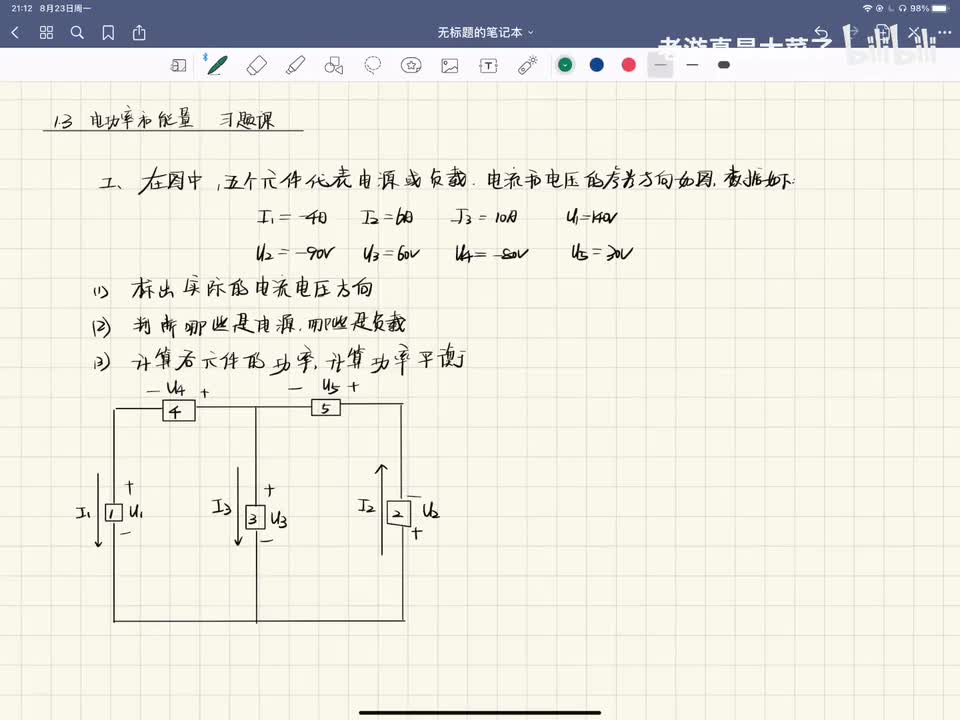 21:12 8月23日周一
98%
无标题的笔记本
老游真是大菜了 bilibili
1.3 电功率和能量 习题课
工、在图中,五个元件代表电源或负载.电流和电压的参考方向如图,数据如下:
I₁=-4A I₂=6A I₃=10A U₁=140V
U₂=-90V U₃=60V U₄=-80V U₅=30V
(1) 标出实际的电流电压方向
(2) 判断哪些是电源,哪些是负载
(3) 计算各元件的功率,计算功率平衡
- U₄ + - U₅ +
4 5
I₁ 1 + U₁ - I₃ 3 + U₃ - I₂ 2 - U₂ +